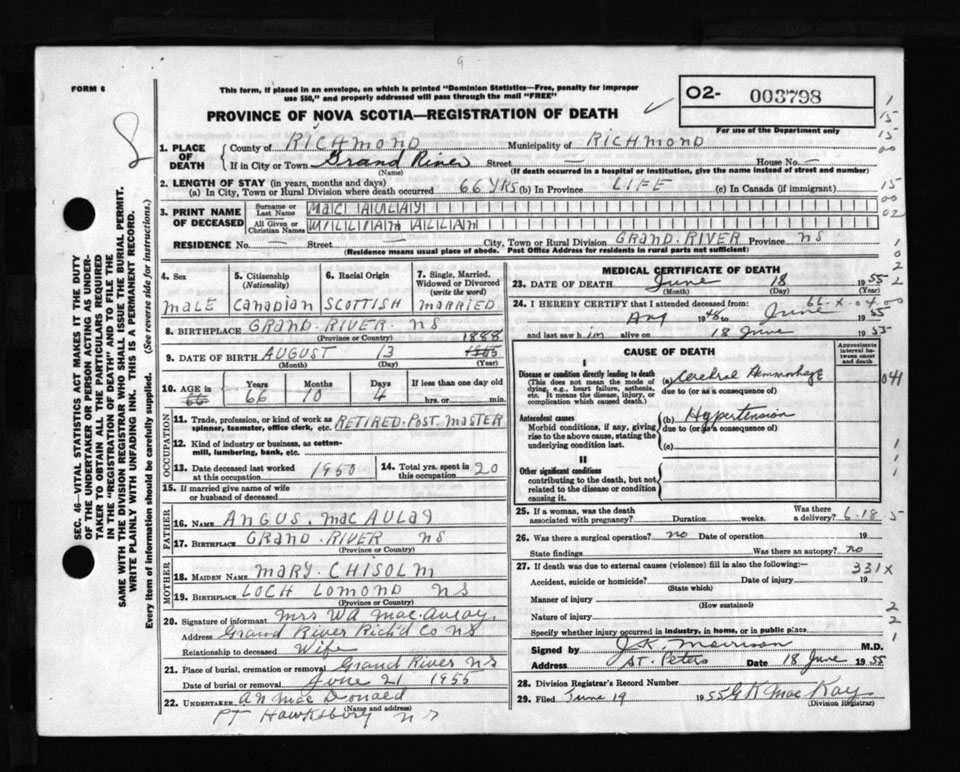 FORM 6
This form, if placed in an envelope, on which is printed "Dominion Statistics—Free, penalty for improper
use $50," and properly addressed will pass through the mail "FREE"
02- 003798
PROVINCE OF NOVA SCOTIA—REGISTRATION OF DEATH
For use of the Department only
1. PLACE OF DEATH County of RICHMOND Municipality of RICHMOND
If in City or Town Grand River Street — House No. —
(Name) (If death occurred in a hospital or institution, give the name instead of street and number)
2. LENGTH OF STAY (in years, months and days)
(a) In City, Town or Rural Division where death occurred 66 YRS (b) In Province LIFE (c) In Canada (if immigrant)
3. PRINT NAME OF DECEASED
Surname or Last Name MAC AULAY
All Given or Christian Names WILLIAM ALLAN
RESIDENCE No. — Street — City, Town or Rural Division GRAND RIVER Province NS
(Residence means usual place of abode. Post Office Address for residents in rural parts not sufficient)
SEC. 46—VITAL STATISTICS ACT MAKES IT THE DUTY
OF THE UNDERTAKER OR PERSON ACTING AS UNDER-
TAKER TO OBTAIN ALL THE PARTICULARS REQUIRED
IN THE "REGISTRATION OF DEATH" AND TO FILE THE
SAME WITH THE DIVISION REGISTRAR WHO SHALL ISSUE THE BURIAL PERMIT.
WRITE PLAINLY WITH UNFADING INK. THIS IS A PERMANENT RECORD.
Every item of information should be carefully supplied. (See reverse side for instructions.)
4. Sex 5. Citizenship (Nationality) 6. Racial Origin 7. Single, Married, Widowed or Divorced (write the word)
MALE Canadian SCOTTISH MARRIED
8. BIRTHPLACE GRAND RIVER NS
(Province or Country)
1888
9. DATE OF BIRTH AUGUST 13
(Month) (Day) (Year)
10. AGE in Years Months Days If less than one day old
66 66 10 4 hrs. or min.
OCCUPATION
11. Trade, profession or kind of work as spinner, teamster, office clerk, etc. RETIRED POST MASTER
12. Kind of industry or business, as cotton-mill, lumbering, bank, etc.
13. Date deceased last worked at this occupation 1950 14. Total yrs. spent in this occupation 20
15. If married give name of wife or husband of deceased
FATHER
16. NAME ANGUS MAC AULAY
17. BIRTHPLACE GRAND RIVER NS
(Province or Country)
MOTHER
18. MAIDEN NAME MARY CHISOLM
19. BIRTHPLACE LOCH LOMOND NS
(Province or Country)
20. Signature of informant Mrs WA MacAulay
Address Grand River Rich'd Co NS
Relationship to deceased Wife
21. Place of burial, cremation or removal Grand River NS
Date of burial or removal June 21 1955
22. UNDERTAKER AN MacDonald
(Name and address)
PT Hawksbury NS
MEDICAL CERTIFICATE OF DEATH
23. DATE OF DEATH June 18 1955
(Month) (Day) (Year)
24. I HEREBY CERTIFY that I attended deceased from: 66-X-04-00
Aug 1948 to June 1955
and last saw him alive on 18 June 1955
CAUSE OF DEATH
Approximate interval between onset and death
I
Disease or condition directly leading to death (a) Cerebral Hemmorhage 041
(This does not mean the mode of dying, e.g., heart failure, asthenia, etc. It means the disease, injury, or complication which caused death.)
due to (or as a consequence of)
Antecedent causes (b) Hypertension
Morbid conditions, if any, giving rise to the above cause, stating the underlying condition last.
due to (or as a consequence of)
(c)
II
Other significant conditions
contributing to the death, but not related to the disease or condition causing it.
25. If a woman, was the death associated with pregnancy? Duration weeks. Was there a delivery? 6-18 5
26. Was there a surgical operation? no Date of operation 19
State findings Was there an autopsy? no
27. If death was due to external causes (violence) fill in also the following:— 331X
Accident, suicide or homicide? Date of injury 19
(State which)
Manner of injury
(How sustained)
Nature of injury
Specify whether injury occurred in industry, in home, or in public place
Signed by J.K. Morrison M.D.
Address St. Peters Date 18 June 1955
28. Division Registrar's Record Number
29. Filed June 19 1955 G K MacKay
(Division Registrar)